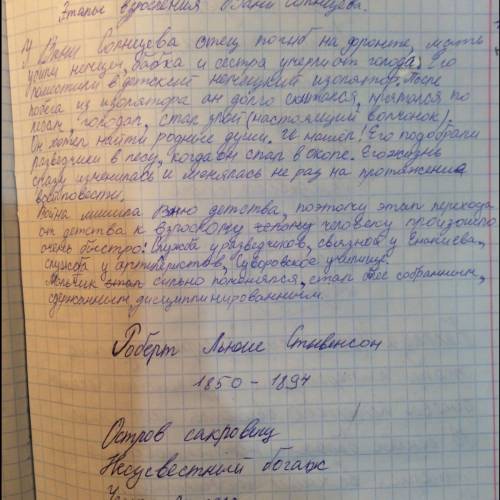 Этапы взросления Вани Солнцева.
У Вани Солнцева отец погиб на фронте, мать
убили немцы, бабка и сестра умерли от голода. Его
поместили в детский немецкий изолятор. После
побега из изолятора он долго скитался, прятался по
лесам, голодал, стал (настоящий волчонок).
Он хотел найти родные души. И нашел! Его подобрали
разведчики в лесу, когда он спал в окопе. Его жизнь
сразу изменилась и менялась не раз на протяжении
повести.
Война лишила Ваню детства, поэтому этапы перехода
от детства к взрослому человеку произошло
очень быстро: служба у разведчиков, связной у Енакиева,
служба у артилеристов, Суворовское училище.
Мальчик стал сильно поменялся, стал более собранным,
сдержанным, дисциплинированным.
Роберт Льюис Стивенсон
1850 - 1894
Остров сакровищ
Несусвестный богач